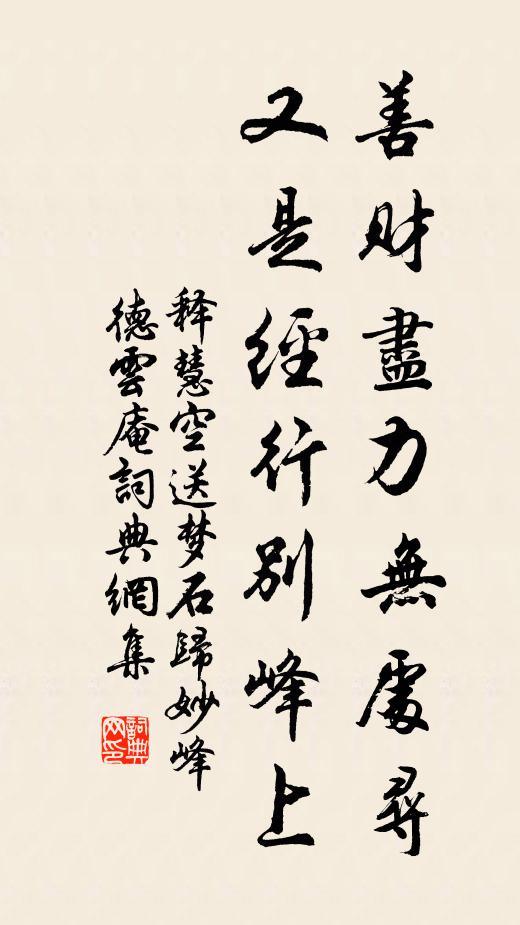 善財盡力無處尋
又是經行別峰上
释慧空送梦石歸妙峰
德雲庵詞典網集
詞典
网印